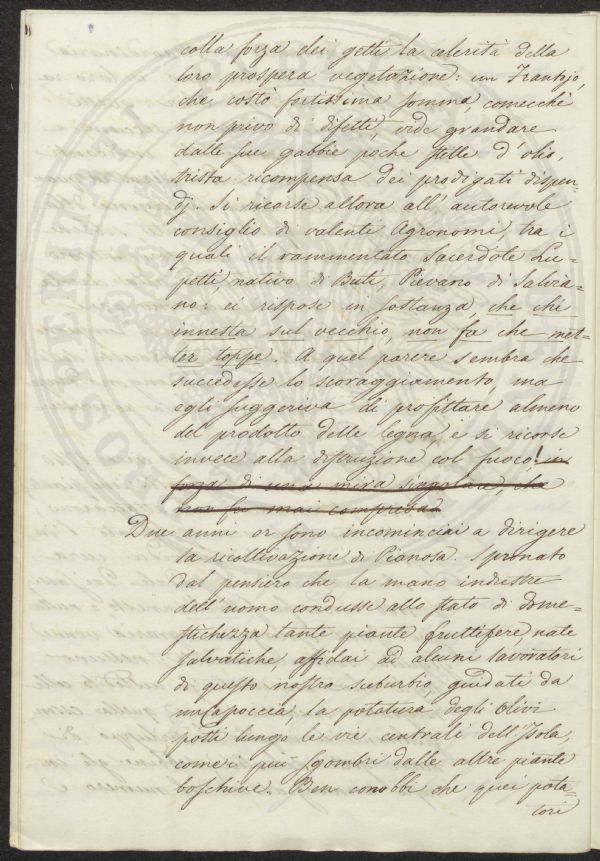 colla forza dei getti la celerità della
loro prospera vegetazione: un Frantojo,
che costò fortissima somma, comecchè
non privo di difetti vide grondare
dalle sue gabbie poche stille d'olio,
trista ricompensa dei prodigati dispen-
dj. Si ricorse allora all'autorevole
consiglio di valenti Agronomi, tra i
quali il rammentato Sacerdote Lu-
petti nativo di Buti, Pievano di Salvia-
no: ei rispose in sostanza, che chi
innesta sul vecchio, non fa che met-
ter toppe. A quel parere sembra che
succedesse lo scoraggiamento, ma
egli suggeriva di profittare almeno
del prodotto delle legna e si ricorse
invece alla distruzione col fuoco! in
forza di una mira singolare, che
non fu mai compresa
Due anni or sono incominciai a dirigere
la ricoltivazione di Pianosa. Spronato
dal pensiero che la mano industre
dell'uomo condusse allo stato di dome-
stichezza tante piante fruttifere, nate
salvatiche, affidai ad alcuni lavoratori
di questo nostro suburbio, guidati da
un capoccia, la potatura degli Olivi
posti lungo le vie centrali dell'Isola,
come i più sgombri dalle altre piante
boschive. Ben conobbi che quei pota-
tori